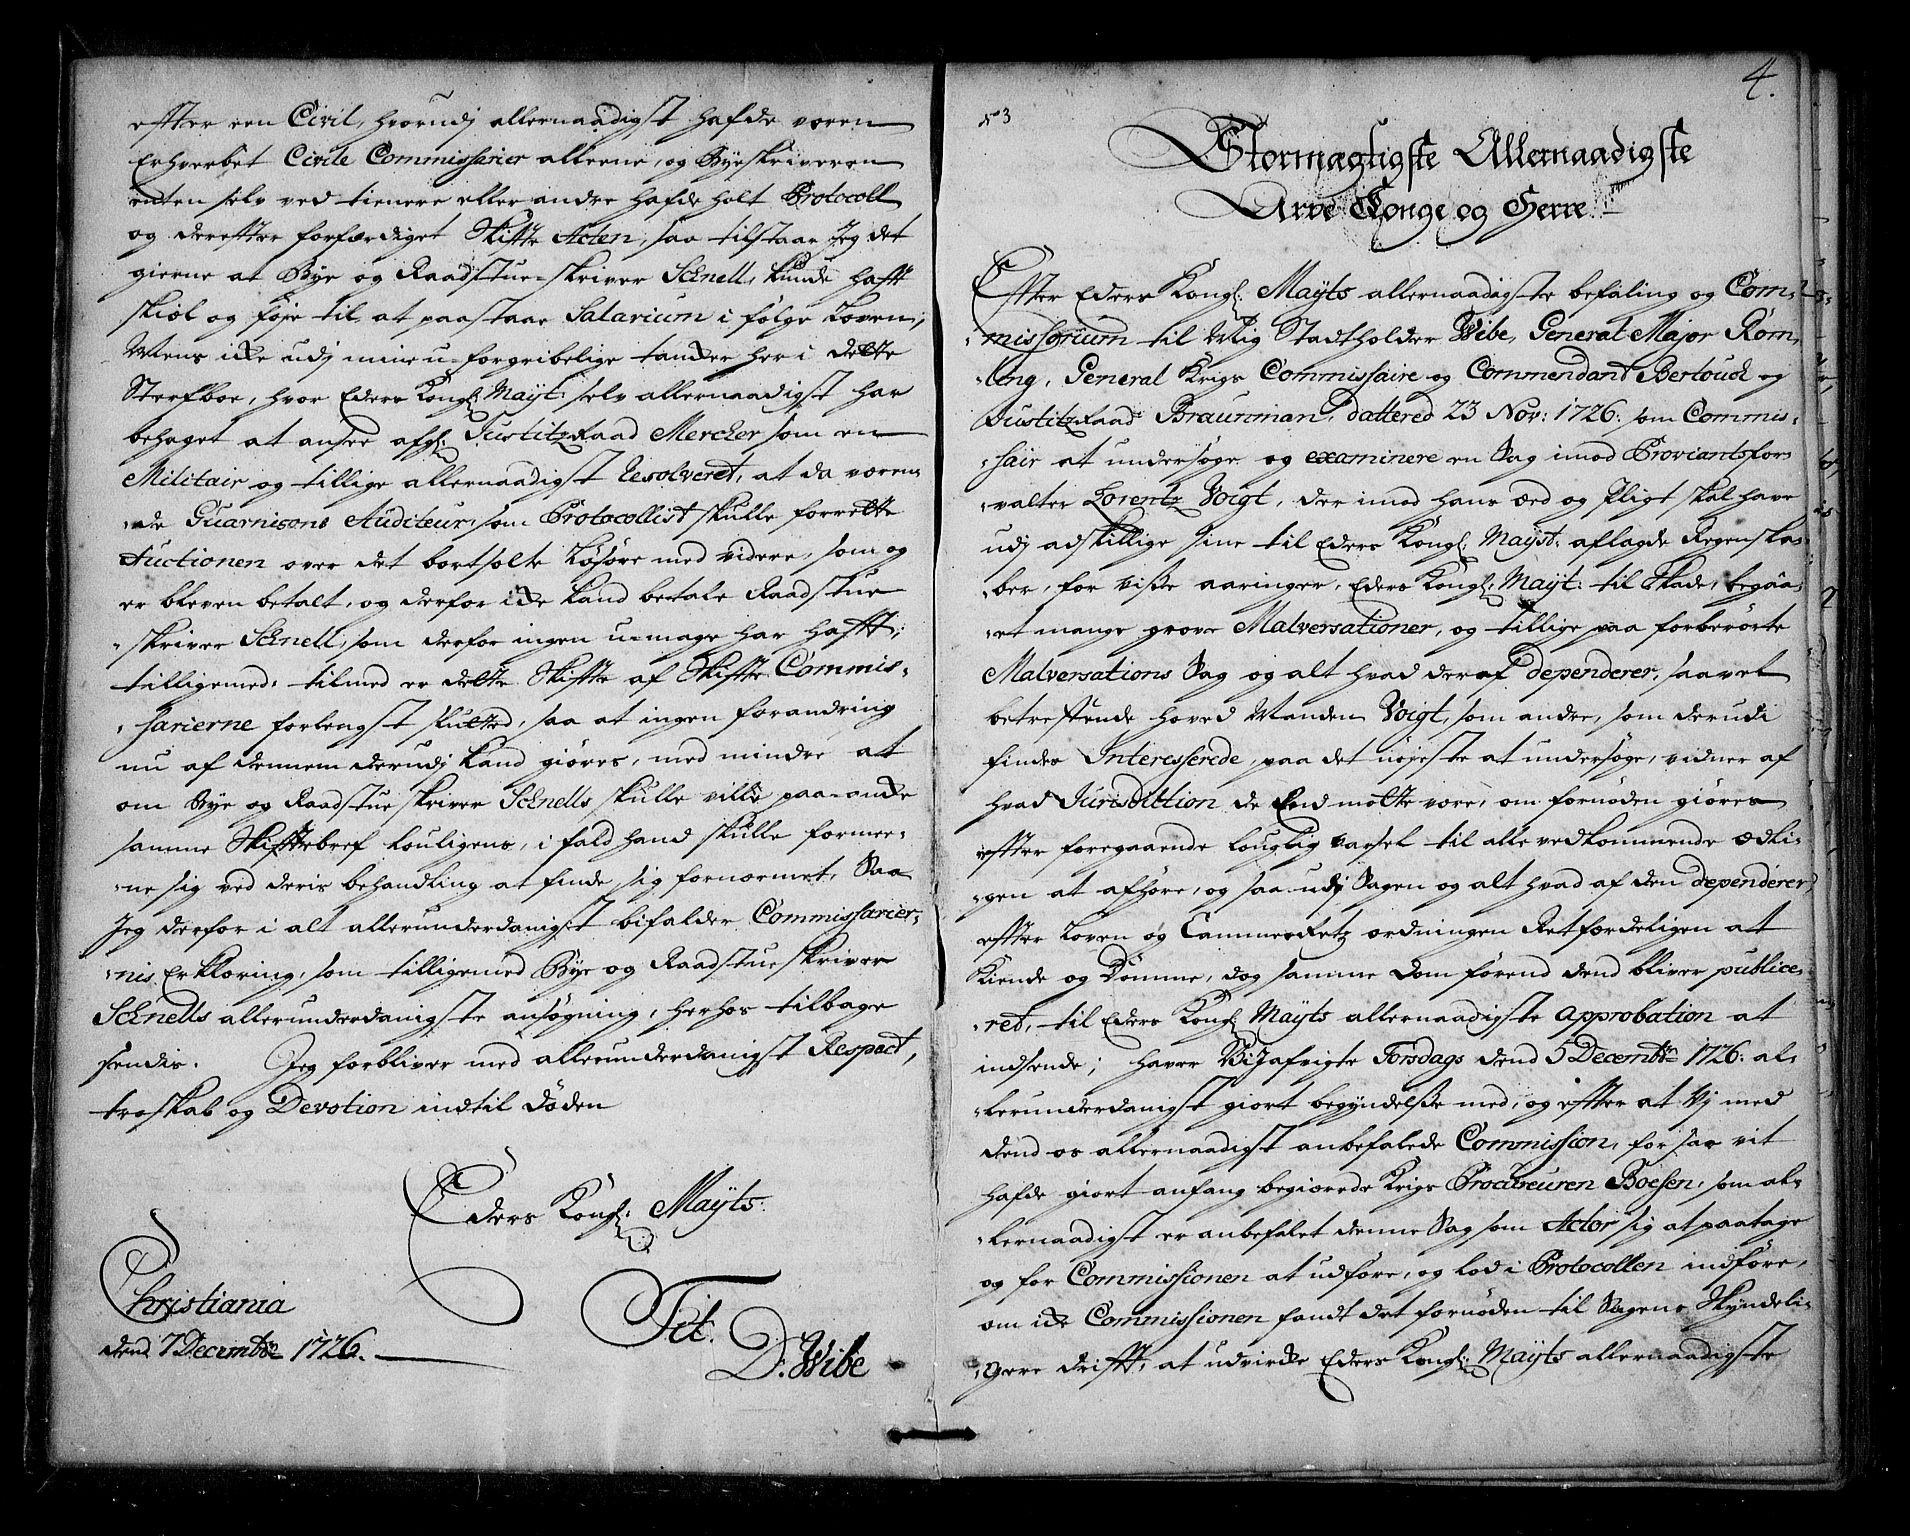 efter een Civil, hvorudj allernaadigst hafde været
Erhverbet Civile Commissarier alleene, og Byeskriveren
enten selv ved tienere eller andre hafde holt Protocoll
og derefter forfærdiget Skifte Acten, saa tilstaar Jeg det
gierne at Bye og Raadstue-skriver Schnell, kunde hafft
skiøl og føje til at paastaae Salarium i følge Loven;
Mens icke udj mine u-forgribelige tancker her i dette
Sterfboe, hvor Eders Kongl: Mayt: selv allernaadigst har
behaget at ansee afgl: Justitz Raad Mercher som en
Militair og tillige allernaadigst Resolveret, at da væren-
-de Guarnisons Auditeur, som Protocollist skulle forrette
Auctionen over det bortsolte Løsøre med videre, som og
er bleven betalt, og derfor icke kand betale Raadstue
-skriver Schnell, som derfor ingen u-mage har hafft;
tilligemed, tilmed er dette Skifte af Skifte Commis-
-sarierne forlengst sluttet, saa at ingen forandring
nu af dennem derudj kand giøres, med mindre, at
om Bye og Raadstueskriver Schnells skulle ville paa-ancke
samme Skifftebref louligens, i fald hand skulle formee-
-ne sig ved deris behandling at finde sig fornærmet. Saa
Jeg derfor i alt allerunderdanigst bifalder Commissarier-
-nis Erklæring, som tilligemed Bye og Raadstueskriver
Schnells allerunderdanigste ansøgning, herhos tilbage
sendis. Jeg forbliver med allerunderdanigst Respect,
troskab og Devotion indtil døden
Eders Kongl: Mayts
Christiania
dend 7 Decembr 1726.
Tit.
D. Wibe
4.
N 3
Stormægtigste Allernaadigste
Arve Konge og Herre
Efter Eders Kongl: Mayts allernaadigste befaling og Com-
-missorium til Mig Stadtholder Wibe, General Major Røm-
-ling, General Krigs Commissaire og Commendant Bertouch og
Justitz Raad Braunman, dattered 23 Nov: 1726: som Commis-
-sair at undersøge og examinere en Sag imod Proviantsfor-
-valter Lorentz Voigt, der imod hans æed og Pligt skal have
udj adskillige sine til Eders Kongl: Mayst: aflagde Regenska-
-ber, for visse aaringer, Eders Kongl: Mayt: til Skade, begaa-
-et mange grove Malversationer, og tillige paa forberørte
Malversations Sag og alt hvad deraf dependerer, saavel
betreffende hoved Manden Voigt, som andre, som derudi
findes Interesserede, paa det nøjeste at undersøge, vidner af
hvad Jurisdiction de End motte være, om fornøden giøres
efter foregaaende louglig varsel til alle vedkommende ædeli-
-gen at afhøre, og saa udj Sagen og alt hvad af den dependerer,
efter Loven og Cammer Retz ordningen Retfærdeligen at
Kiende og Dømme, dog samme Dom førend dend bliver publice-
-ret, til Eders Kongl: Mayts allernaadigste approbation at
indsende; haver Vi afvigte Torsdags dend 5 Decembr 1726: al-
-lerunderdanigst giort begyndelsse med, og efter at Vj med
dend os allernaadigst anbefalede Commission, for saa vit
hafde giort anfang begiærede Krigs Procureuren Boesen, som al-
-lernaadigst er anbefalet denne Sag som Actor sig at paatage
og for Commissionen at udføre, og lod i Protocollen indføre,
om icke Commissionen fandt det fornøden til Sagens Skyndeli-
-gere drifft, at udvircke Eders Kongl: Mayts allernaadigste